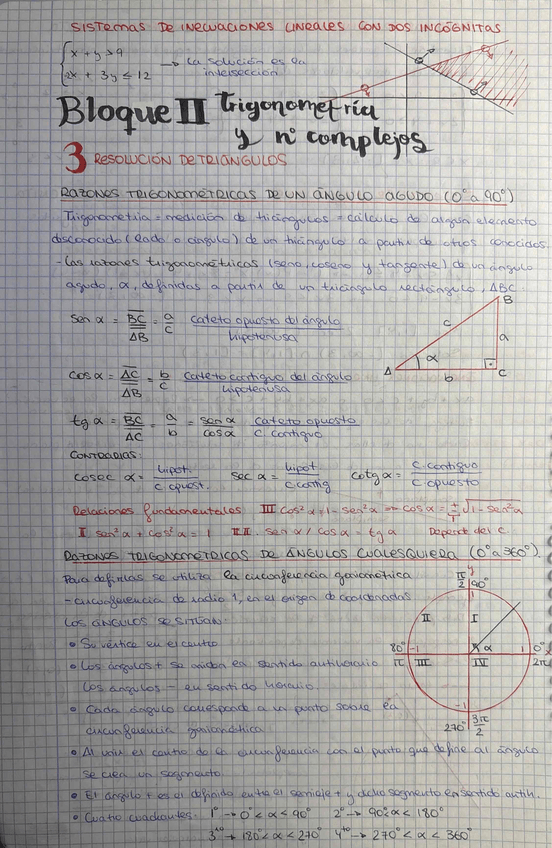 SISTEMAS DE INECUACIONES LINEALES CON DOS INCÓGNITAS
x + y > 9
2x + 3y ≤ 12
→ La solución es la
intersección
Bloque II Trigonometría
y nº complejos
3 RESOLUCIÓN DE TRIÁNGULOS
RAZONES TRIGONOMÉTRICAS DE UN ÁNGULO AGUDO (0° a 90°)
Trigonometría = medición de triángulos = cálculo de algún elemento
desconocido (lado o ángulo) de un triángulo a partir de otros conocidos
- Las razones trigonométricas (seno, coseno y tangente) de un ángulo
agudo, α, definidas a partir de un triángulo rectángulo, ABC.
sen α = BC/AB = a/c cateto opuesto del ángulo / hipotenusa
cos α = AC/AB = b/c cateto contiguo del ángulo / hipotenusa
tg α = BC/AC = a/b = sen α/cos α cateto opuesto / c. contiguo
A B C a b c α
CONTRARIAS:
cosec α = hipot. / c. opuest. sec α = hipot / c. contig cotg α = c. contiguo / c. opuesto
Relaciones fundamentales III cos²α = 1 - sen²α → cos α = ± √1 - sen²α
I sen²α + cos²α = 1 II. sen α / cos α = tg α Depende del c.
RAZONES TRIGONOMÉTRICAS DE ÁNGULOS CUALESQUIERA (0° a 360°).
Para definirlas se utiliza la circunferencia goniométrica
- circunferencia de radio 1, en el origen de coordenadas
LOS ÁNGULOS SE SITÚAN:
• Su vértice en el centro
• Los ángulos + se miden en sentido antihorario
Los ángulos - en sentido horario.
• Cada ángulo corresponde a un punto sobre la
circunferencia goniométrica
• Al unir el centro de la circunferencia con el punto que define al ángulo
se crea un segmento.
• El ángulo + es el definido entre el semieje + y dicho segmento en sentido antih.
• Cuatro cuadrantes: 1° → 0° < α < 90° 2° → 90° < α < 180°
3ro → 180° < α < 270° 4to → 270° < α < 360°
π/2 90°
1
II I
80° -1 α 1 0°
π III IV 2π
-1
270° 3π/2